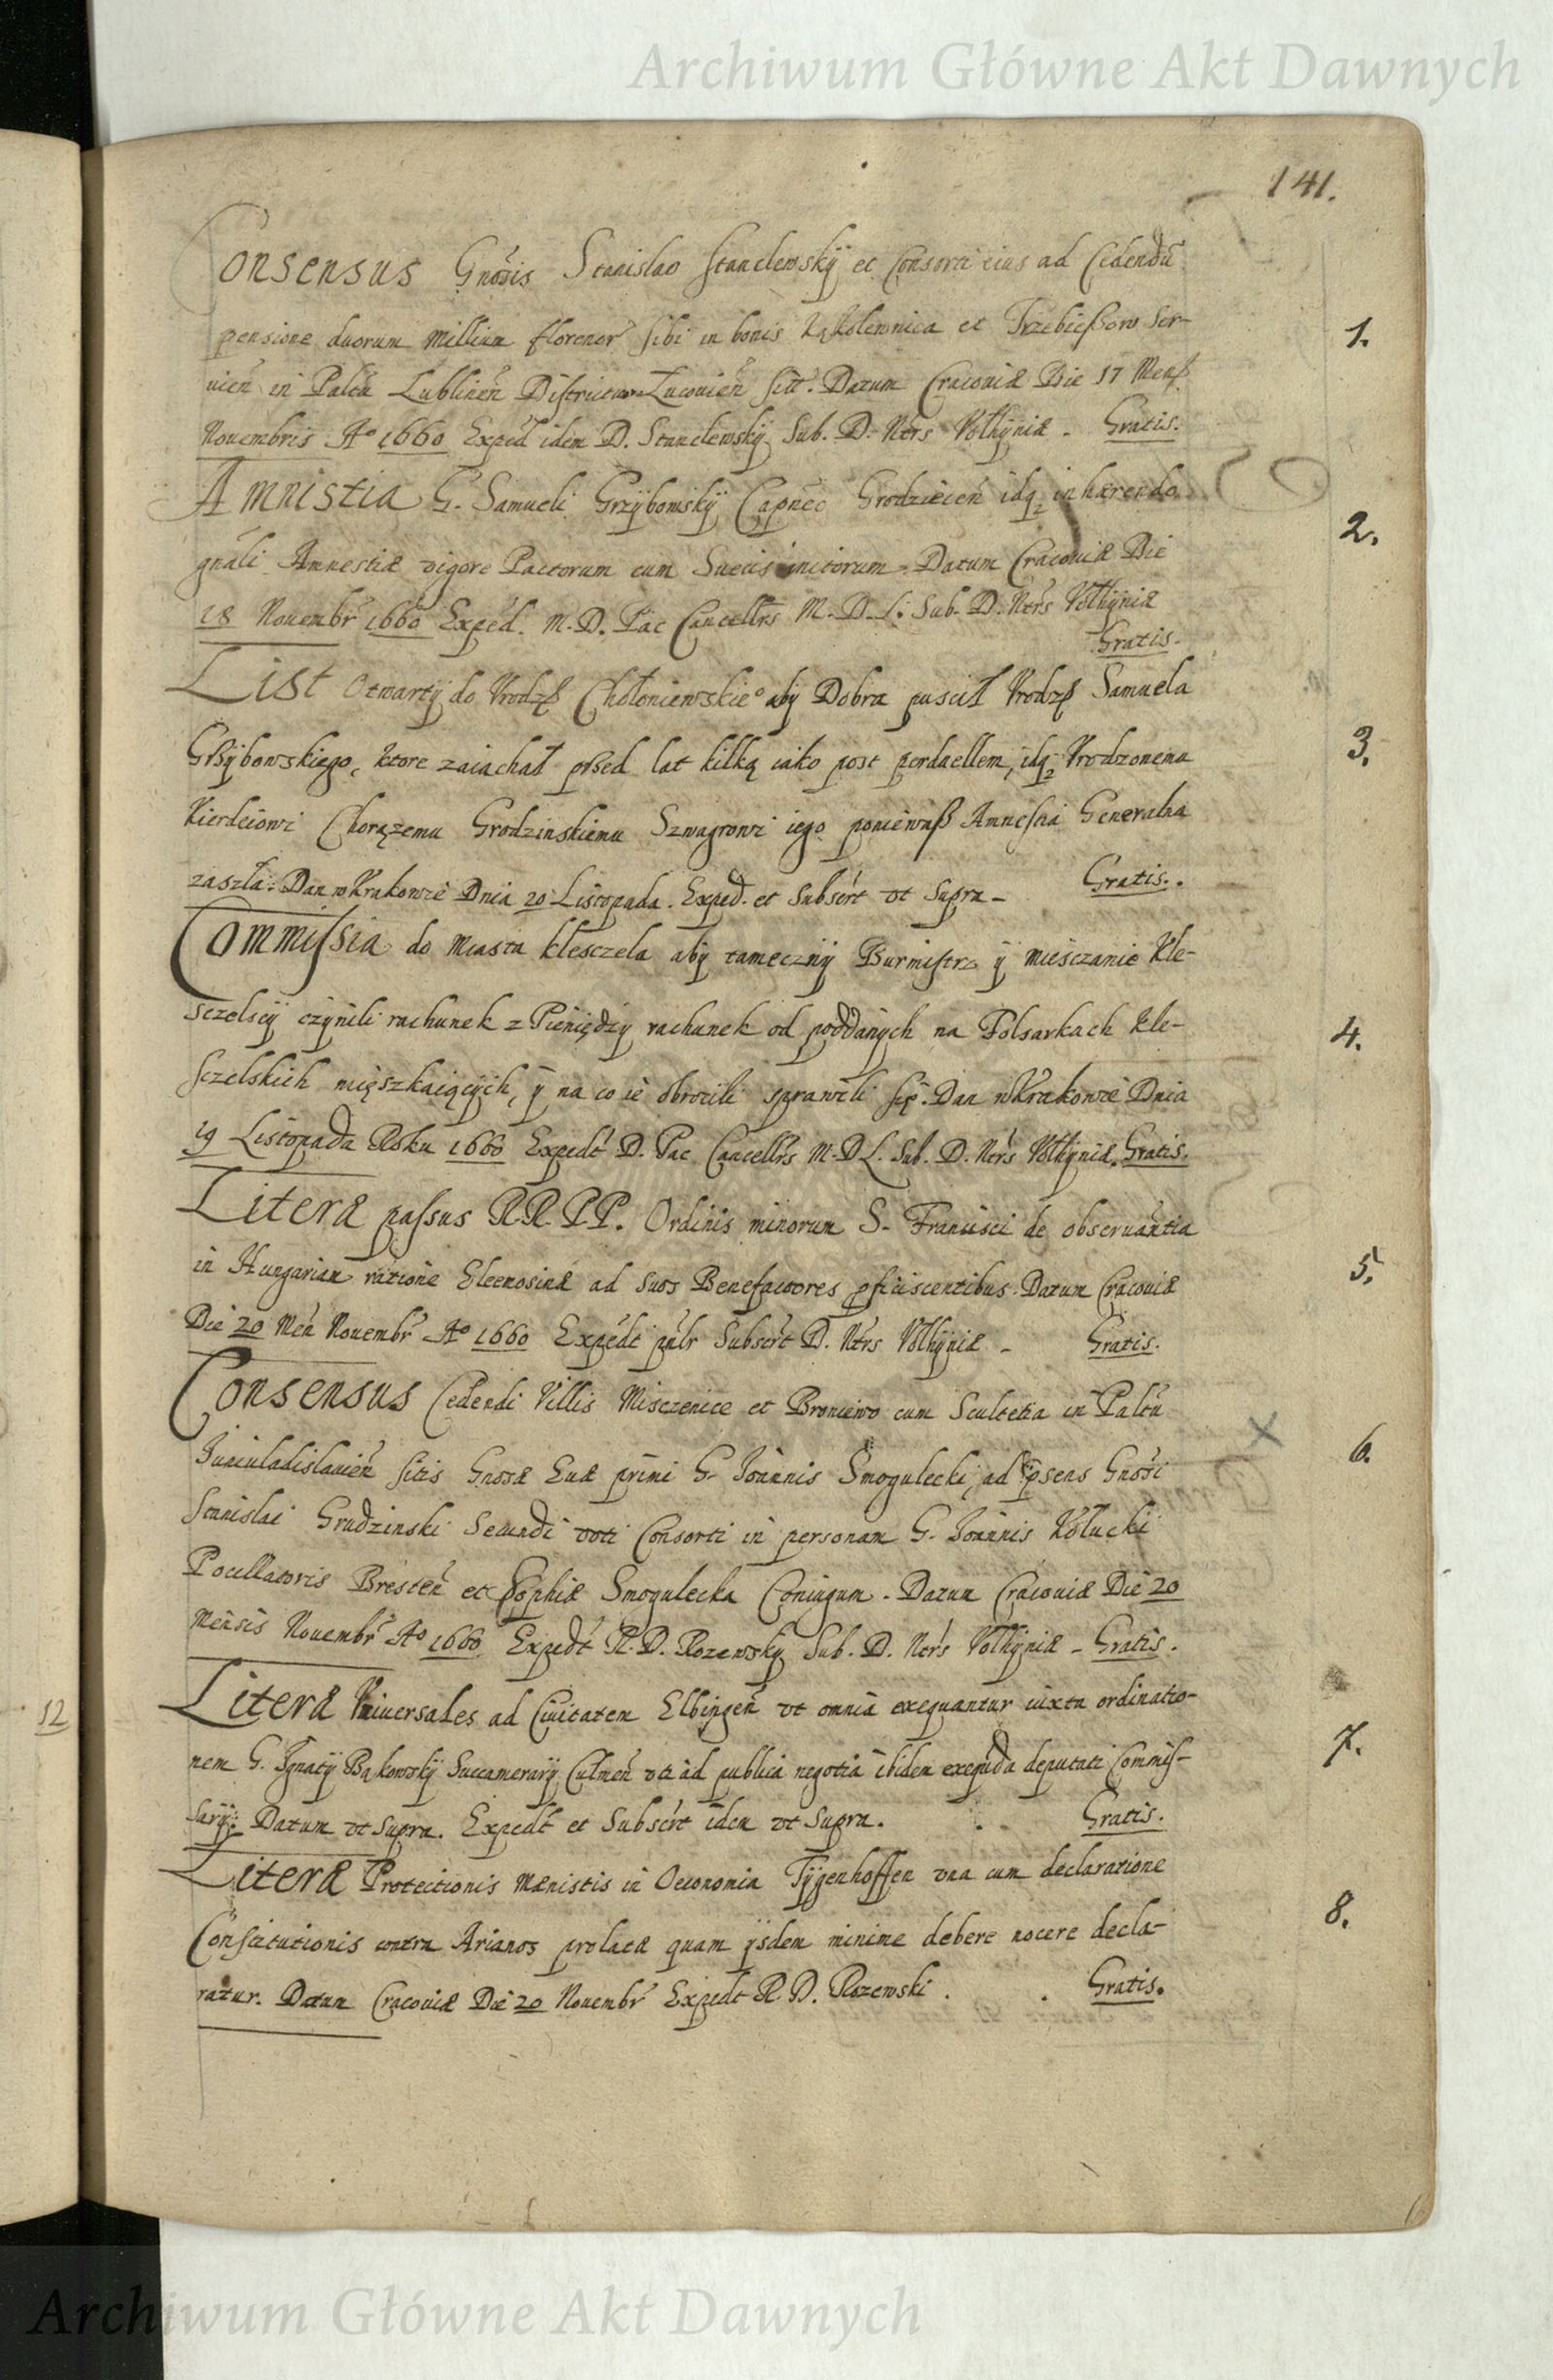 Archiwum Główne Akt Dawnych
141.
Consensus Gnosis Stanislao Stanclewskÿ et Consorti eius ad Cedendũ
pensione duorum Millium florenor sibi in bonis Kąkolewnica et Trzebießow Ser-
uień in Palťu Lublineń Districtu Lucouień sitť. Datum Cracouiæ Die 17 Menß
Nouembris Aº 1660 Exped idem D. Stanclewskÿ Sub. D. Nŕs Volhÿniæ - Gratis.
1.
Amnistia G. Samueli Grzÿbowskÿ Capneo Grodzieceń idq inhærendo
gnáli Amnestiæ vigore Pactorum cum Suecis initorum. Datum Cracouiæ Die
18 Nouembr 1660 Exped. M. D. Pac Cancellrs M. D. L. Sub. D. Nŕs Volhÿniæ
Gratis.
2.
List Otwartÿ do Vrodzß Chołoniewskieº abÿ Dobra puscił Vrodzß Samuela
Grßÿbowskiego, ktore zaiachał pßed lat kilką iako post perduellem, idq Vrodzonemu
Kierdeiowi Chorązemu Grodzinskiemu Szwagrowi iego poniewaß Amnestia Generalna
zaszła. Dan w Krakowie Dnia 20 Listopada. Exped. et Subscrt vt Supra - Gratis.
3.
Commissia do Miasta klesczela abÿ tamecznÿ Burmistrz ÿ miesczanie Kle-
sczelscÿ czÿnili rachunek z Pieniędzÿ rachunek od poddanÿch na Folsarkach Kle-
sczelskich mięszkaiącÿch, ÿ na co ie obrocili sprawili się. Dan w Krakowie Dnia
19 Listopada Roku 1660 Expedt D. Pac Cancellrs M. D. L. Sub. D. Nrs Volhÿniæ. Gratis.
4.
Literæ passus R.R. P.P. Ordinis minorum S. Francisci de obseruantia
in Hungariam ratione Eleemosinæ ad suos Benefactores pficiscentibus. Datum Cracouiæ
Die 20 Meń Nouembr Aº 1660 Expedt pulr Subscrt D. Nŕs Volhÿniæ - Gratis.
5.
Consensus Cedendi Villis Misczenice et Broniewo cum Scultetia in Paltu
Iuniuladislauień sitis Gnosæ Euæ primi G. Ioannis Smogulecki, ad psens Gnosi
Stanislai Grudzinski Secundi voti Consorti in personam G. Ioannis Kołucki
Pocillatoris Bresteń et Sophiæ Smogulecka Coniugum. Datum Cracouiæ Die 20
Mensis Nouembr Aº 1660 Expedt R. D. Rozewskÿ Sub. D. Nŕs Volhÿniæ - Gratis.
6.
Literæ Vniuersales ad Ciuitatem Elbingeń vt omnia exequantur iuxta ordinatio-
nem G. Ignatÿ Bąkowskÿ Succamerarÿ Culmeń vti ad publica negotia ibidem exequeda deputati Commiß-
sarÿ: Datum vt Supra. Expedt et Subscrt idem vt Supra. Gratis.
7.
12
Literæ Protectionis Mænistis in Oeconomia Tÿgenhoffen vna cum declaratione
Constitutionis contra Arianos prolatæ quam ÿsdem minime debere nocere decla-
ratur. Datum Cracouiæ Die 20 Nouembr Expedt R. D. Rozewski. Gratis.
8.
Archiwum Główne Akt Dawnych